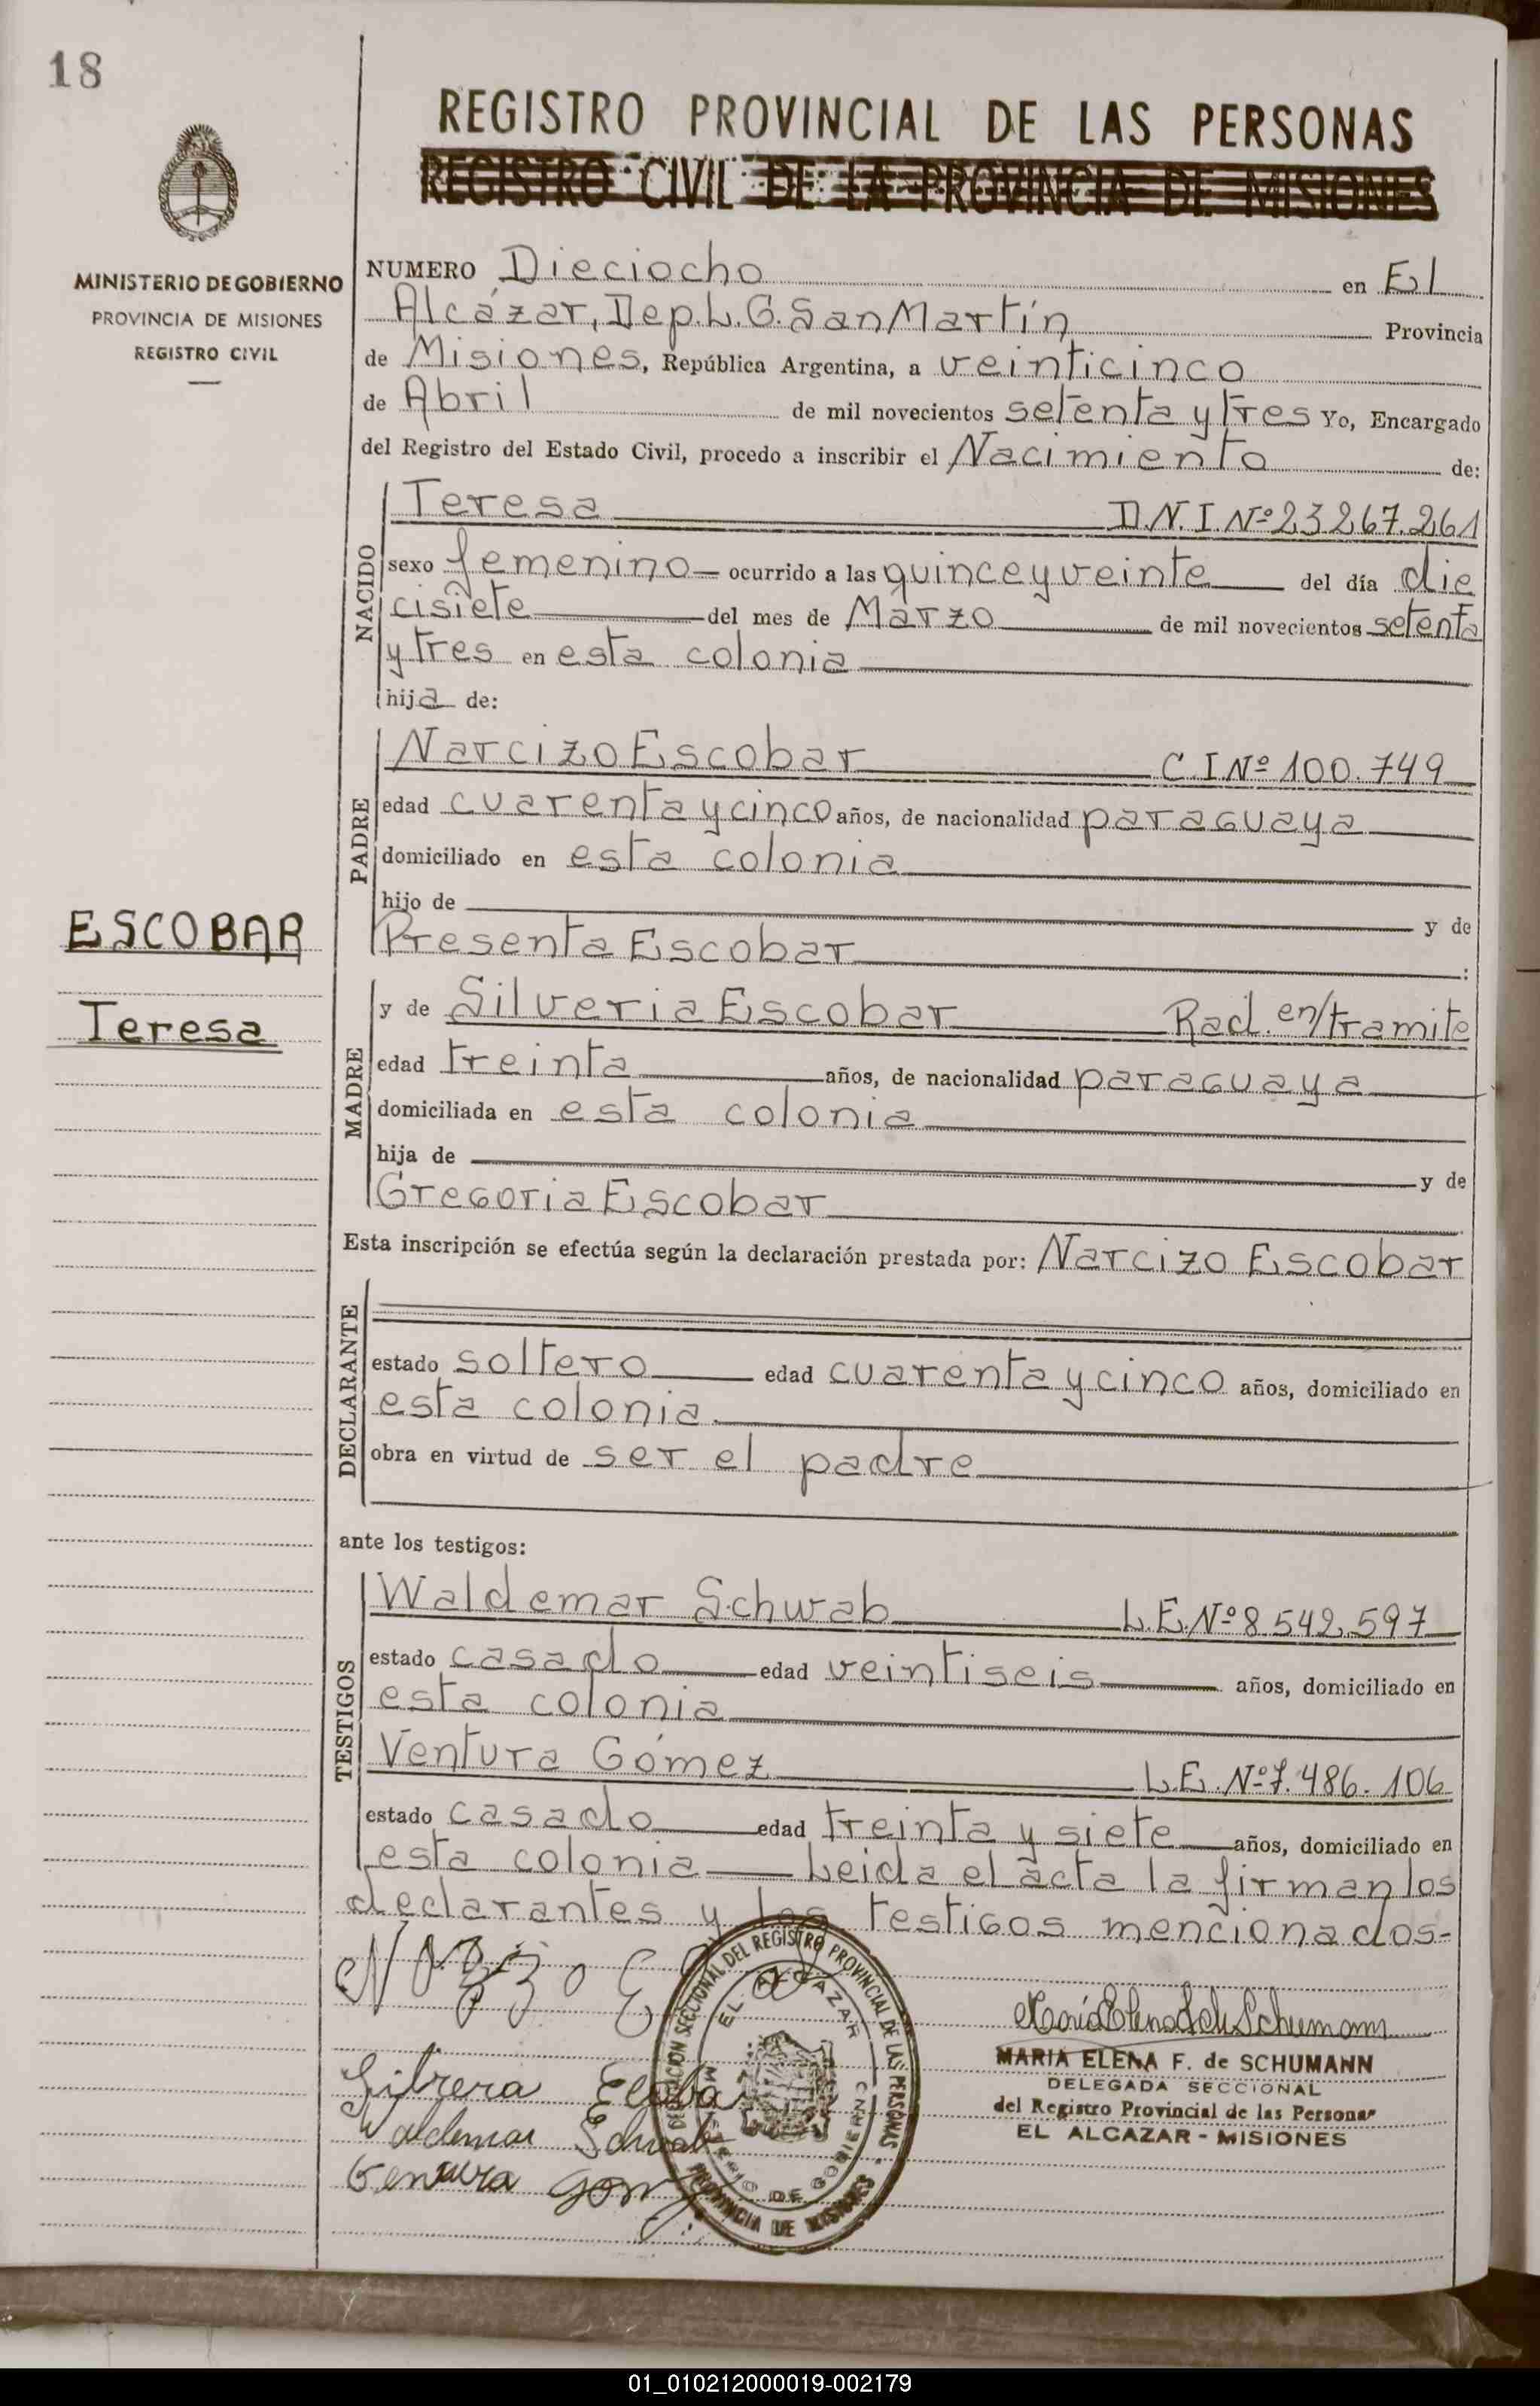 18
REGISTRO PROVINCIAL DE LAS PERSONAS
REGISTRO CIVIL DE LA PROVINCIA DE MISIONES
MINISTERIO DE GOBIERNO
PROVINCIA DE MISIONES
REGISTRO CIVIL
NUMERO Dieciocho en El
Alcázar, Dep. L. G. San Martín Provincia
de Misiones, República Argentina, a veinticinco
de Abril de mil novecientos setenta y tres Yo, Encargado
del Registro del Estado Civil, procedo a inscribir el Nacimiento de:
NACIDO
Teresa D.N.I. Nº 23.267.261
sexo femenino ocurrido a las quince y veinte del día die
cisiete del mes de Marzo de mil novecientos setenta
y tres en esta colonia
hija de:
PADRE
Narcizo Escobar C.I Nº 100.749
edad cuarenta y cinco años, de nacionalidad paraguaya
domiciliado en esta colonia
hijo de y de
Presenta Escobar :
ESCOBAR
Teresa
MADRE
y de Silveria Escobar Rad. en/tramite
edad treinta años, de nacionalidad paraguaya
domiciliada en esta colonia
hija de y de
Gregoria Escobar
Esta inscripción se efectúa según la declaración prestada por: Narcizo Escobar
DECLARANTE
estado soltero edad cuarenta y cinco años, domiciliado en
esta colonia.
obra en virtud de ser el padre
ante los testigos:
TESTIGOS
Waldemar Schwab L.E. Nº 8.542.597
estado casado edad veintiseis años, domiciliado en
esta colonia
Ventura Gómez L.E. Nº 7.486.106
estado casado edad treinta y siete años, domiciliado en
esta colonia Leida el acta la firman los
declarantes y los testigos mencionados-
DELEGACION SECCIONAL DEL REGISTRO PROVINCIAL DE LAS PERSONAS
EL ALCAZAR
MINISTERIO DE GOBIERNO
PROVINCIA DE MISIONES
Waldemar Schwab
Ventura
MARIA ELENA F. de SCHUMANN
DELEGADA SECCIONAL
del Registro Provincial de las Personas
EL ALCAZAR - MISIONES
01_010212000019-002179